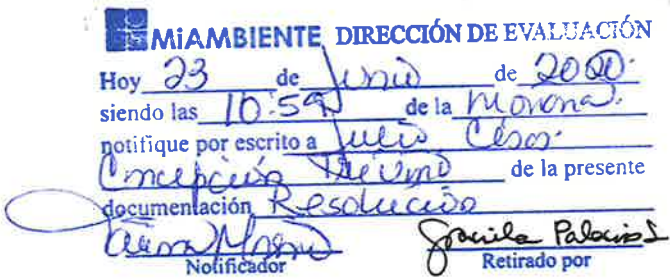 MiAMBIENTE DIRECCIÓN DE EVALUACIÓN
Hoy 23 de Junio de 2020.
siendo las 10:59 de la Morena.
notifique por escrito a Julio César
Concepción Triviño de la presente
documentación Resolución
Graciela Palacios
Notificador Retirado por